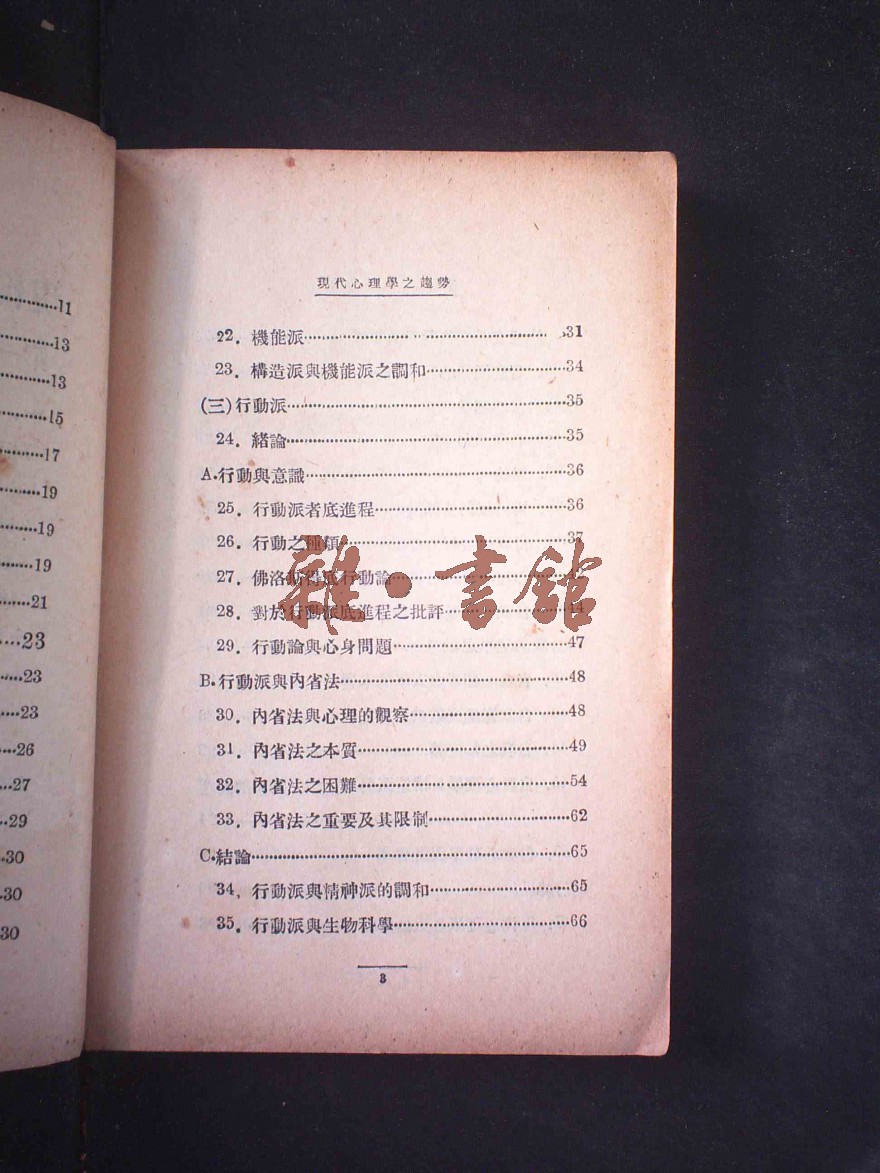 11
13
13
15
17
19
19
19
21
23
23
23
26
27
29
30
30
30
現代心理學之趨勢
22. 機能派 31
23. 構造派與機能派之調和 34
(三)行動派 35
24. 緒論 35
A.行動與意識 36
25. 行動派者底進程 36
26. 行動之種類 37
27. 佛洛斯得底行動論
28. 對於行動派底進程之批評 44
29. 行動論與心身問題 47
B.行動派與內省法 48
30. 內省法與心理的觀察 48
31. 內省法之本質 49
32. 內省法之困難 54
33. 內省法之重要及其限制 62
C.結論 65
34. 行動派與精神派的調和 65
35. 行動派與生物科學 66
3
雜·書館